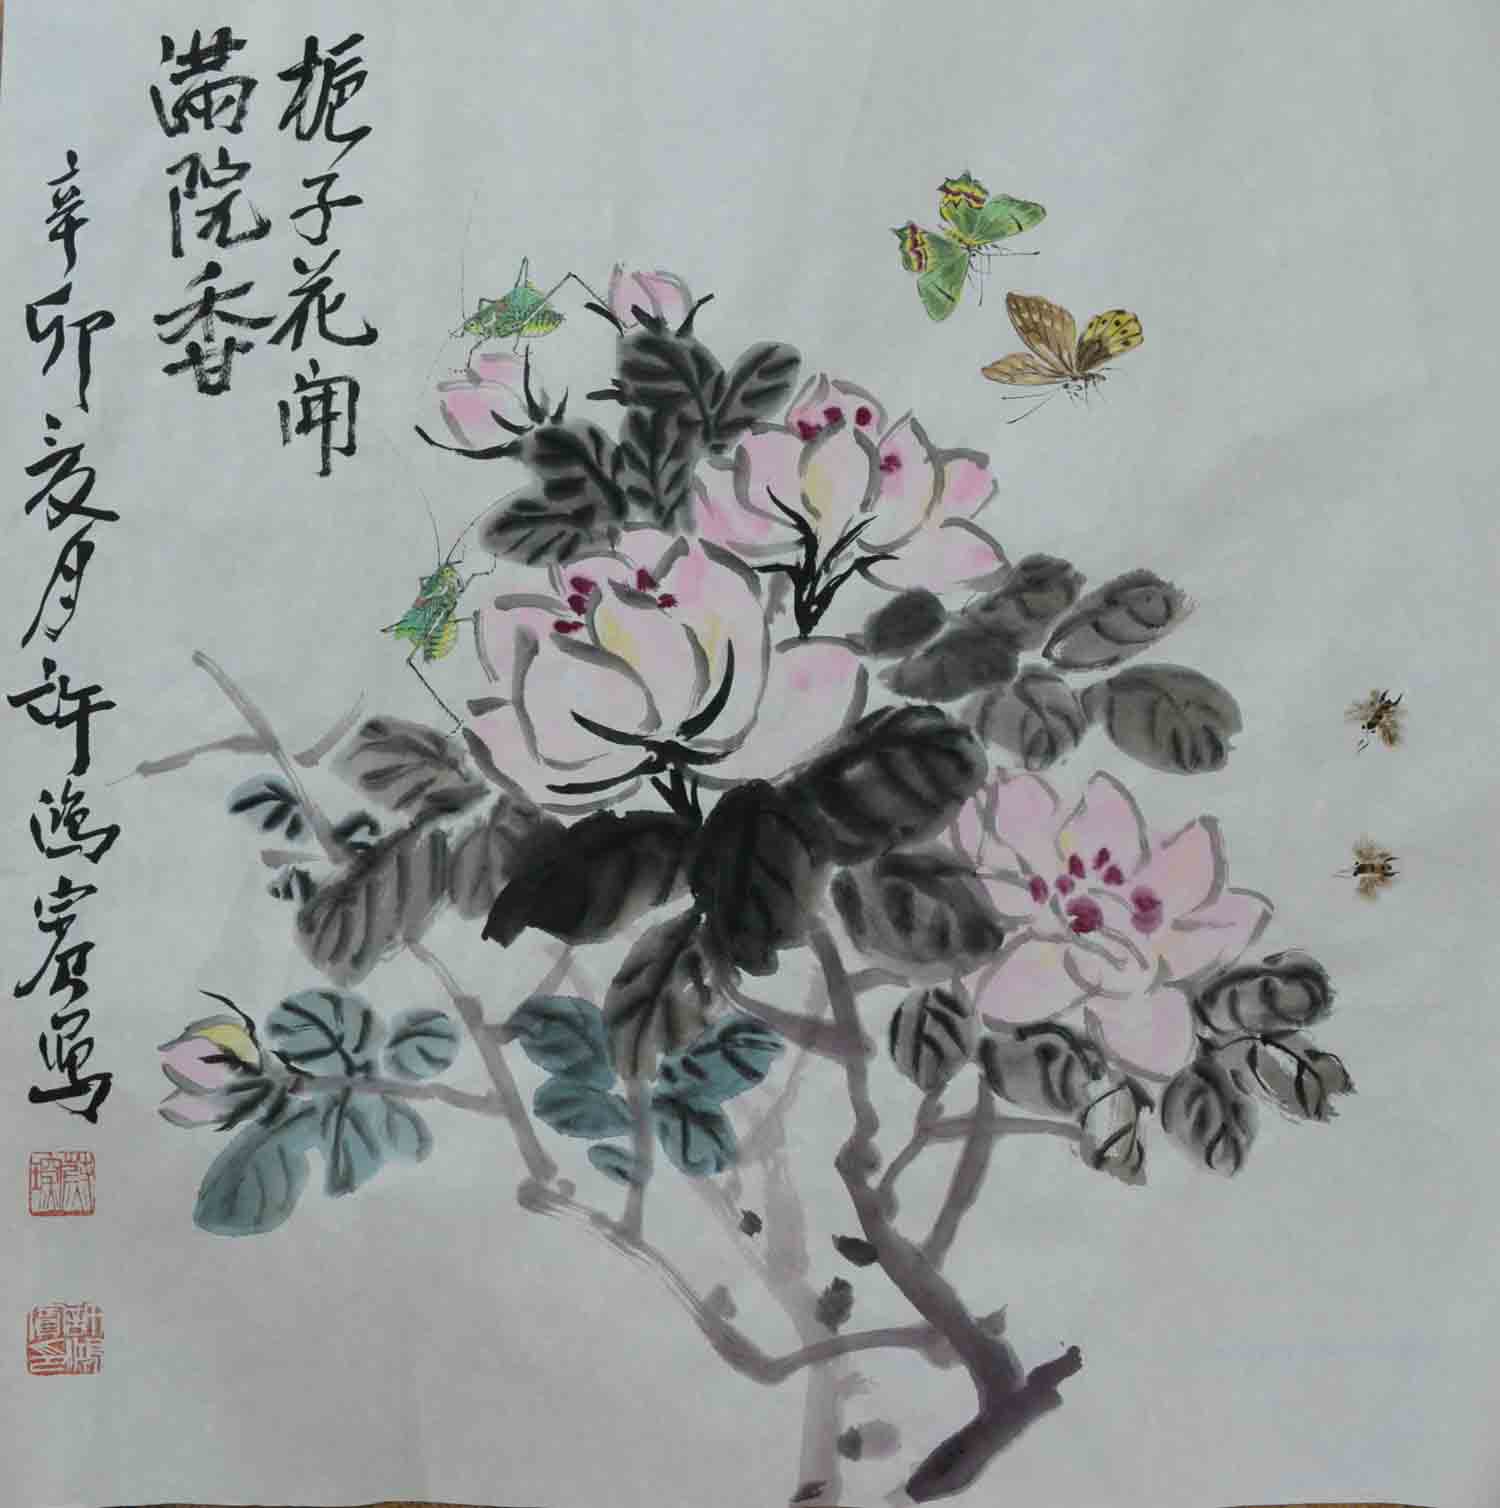 栀子花开
满院香
辛卯夏月许鸿宾写